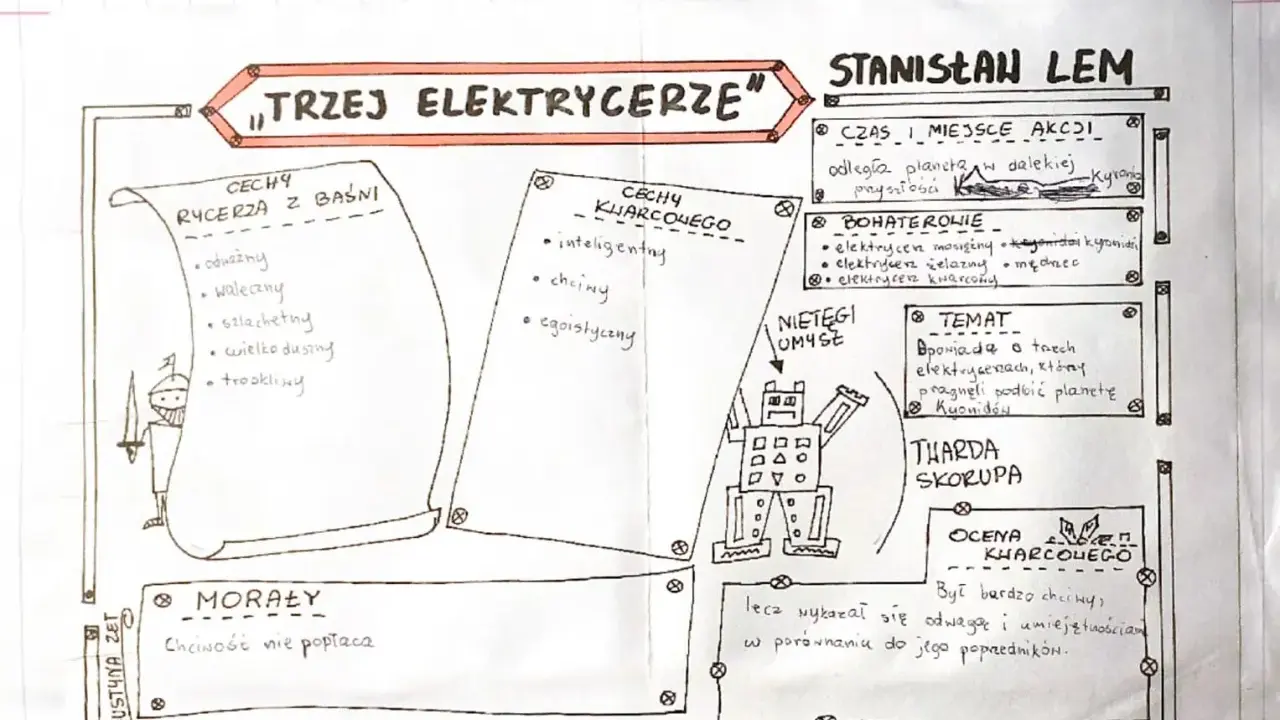 „TRZEJ ELEKTRYCERZE”
STANISŁAW LEM
CZAS I MIEJSCE AKCJI
odległa planeta w dalekiej
przyszłości Kyronia
BOHATEROWIE
• elektrycerz mosiężny • kryonidzi kryonidzi
• elektrycerz żelazny • mędrzec
• elektrycerz kwarcowy
CECHY
RYCERZA Z BAŚNI
• odważny
• waleczny
• szlachetny
• wielkoduszny
• troskliwy
CECHY
KWARCOWEGO
• inteligentny
• chciwy
• egoistyczny
NIETĘGI
UMYSŁ
TEMAT
Opowiada o trzech
elektrycerzach, którzy
pragnęli podbić planetę
Kyonidów
TWARDA
SKORUPA
OCENA
KWARCOWEGO
Był bardzo chciwy,
lecz wykazał się odwagą i umiejętnościami
w porównaniu do jego poprzedników.
MORAŁY
Chciwość nie popłaca
USTYNA ZET